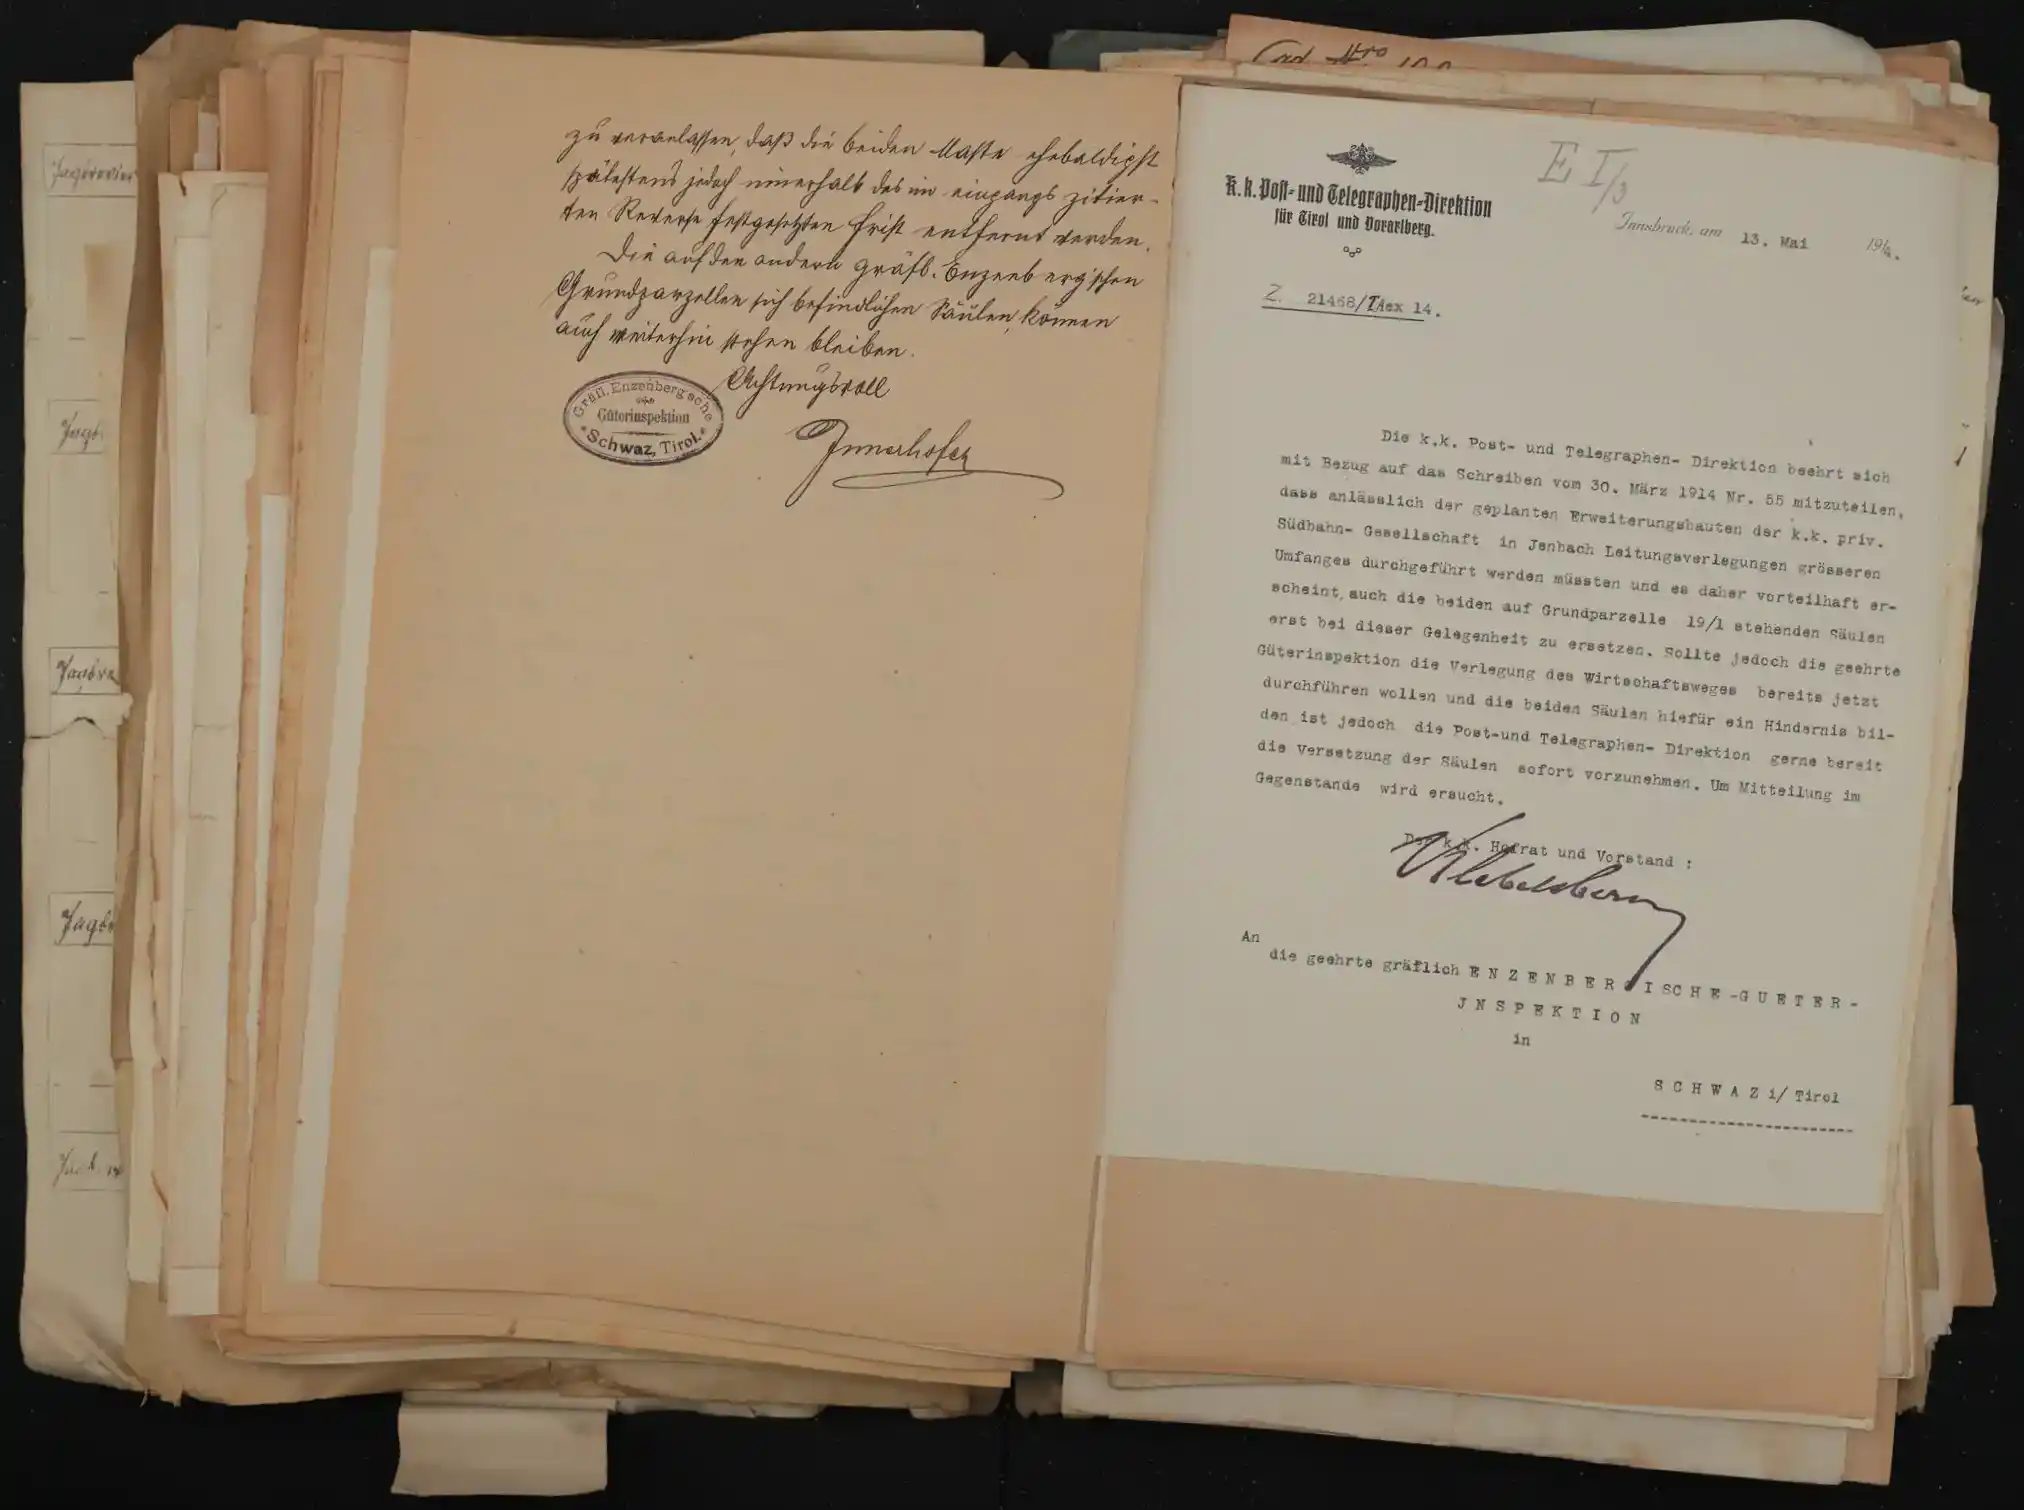 zu veranlassen, daß die beiden Maste ehebaldigst
spätestens jedoch innerhalb des im eingangs zitier-
ten Reverse festgesetzten Frist entfernt werden.
Die auf den andern gräfl. Enzenberg'schen
Grundparzellen sich befindlichen Säulen, können
auch weiterhin stehen bleiben.
Achtungsvoll
Gräfl. Enzenberg'sche
Güterinspektion
Schwaz, Tirol.
Innerhofer
Jagdrevier
E I/3
K.k. Post- und Telegraphen-Direktion
für Tirol und Vorarlberg.
Innsbruck, am 13. Mai 1914.
Z. 21468/IAex 14.
Die k.k. Post- und Telegraphen- Direktion beehrt sich
mit Bezug auf das Schreiben vom 30. März 1914 Nr. 55 mitzuteilen,
dass anlässlich der geplanten Erweiterungsbauten der k.k. priv.
Südbahn- Gesellschaft in Jenbach Leitungsverlegungen grösseren
Umfanges durchgeführt werden müssten und es daher vorteilhaft er-
scheint, auch die beiden auf Grundparzelle 19/1 stehenden Säulen
erst bei dieser Gelegenheit zu ersetzen. Sollte jedoch die geehrte
Güterinspektion die Verlegung des Wirtschaftsweges bereits jetzt
durchführen wollen und die beiden Säulen hiefür ein Hindernis bil-
den ist jedoch die Post-und Telegraphen- Direktion gerne bereit
die Versetzung der Säulen sofort vorzunehmen. Um Mitteilung im
Gegenstande wird ersucht.
Der k.k. Hofrat und Vorstand :
Klebelsberg
An
die geehrte gräflich ENZENBERGISCHE-GUETER-
JNSPEKTION
in
SCHWAZ i/ Tirol